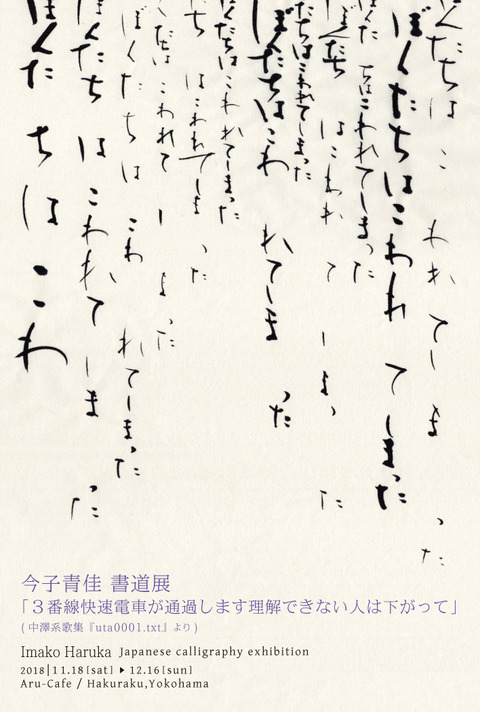 ぼくたちはこわれてしまった
ぼくたちはこわれてしまった
くたちはこわれてしまった
ぼくたちはこわれてしまった
たちはこわれてしまった
ぼくたちはこわれてしまった
くたちはこわれてしまった
たちはこわれてしまった
たちはこわれてしまった
ぼくたちはこわれてしまった
ぼくたちはこわれてしまった
ぼくたちはこわ
今子青佳 書道展
「３番線快速電車が通過します理解できない人は下がって」
(中澤系歌集『uta0001.txt』より)
Imako Haruka Japanese calligraphy exhibition
2018|11.18[sat]▶12.16[sun]
Aru-Cafe / Hakuraku,Yokohama